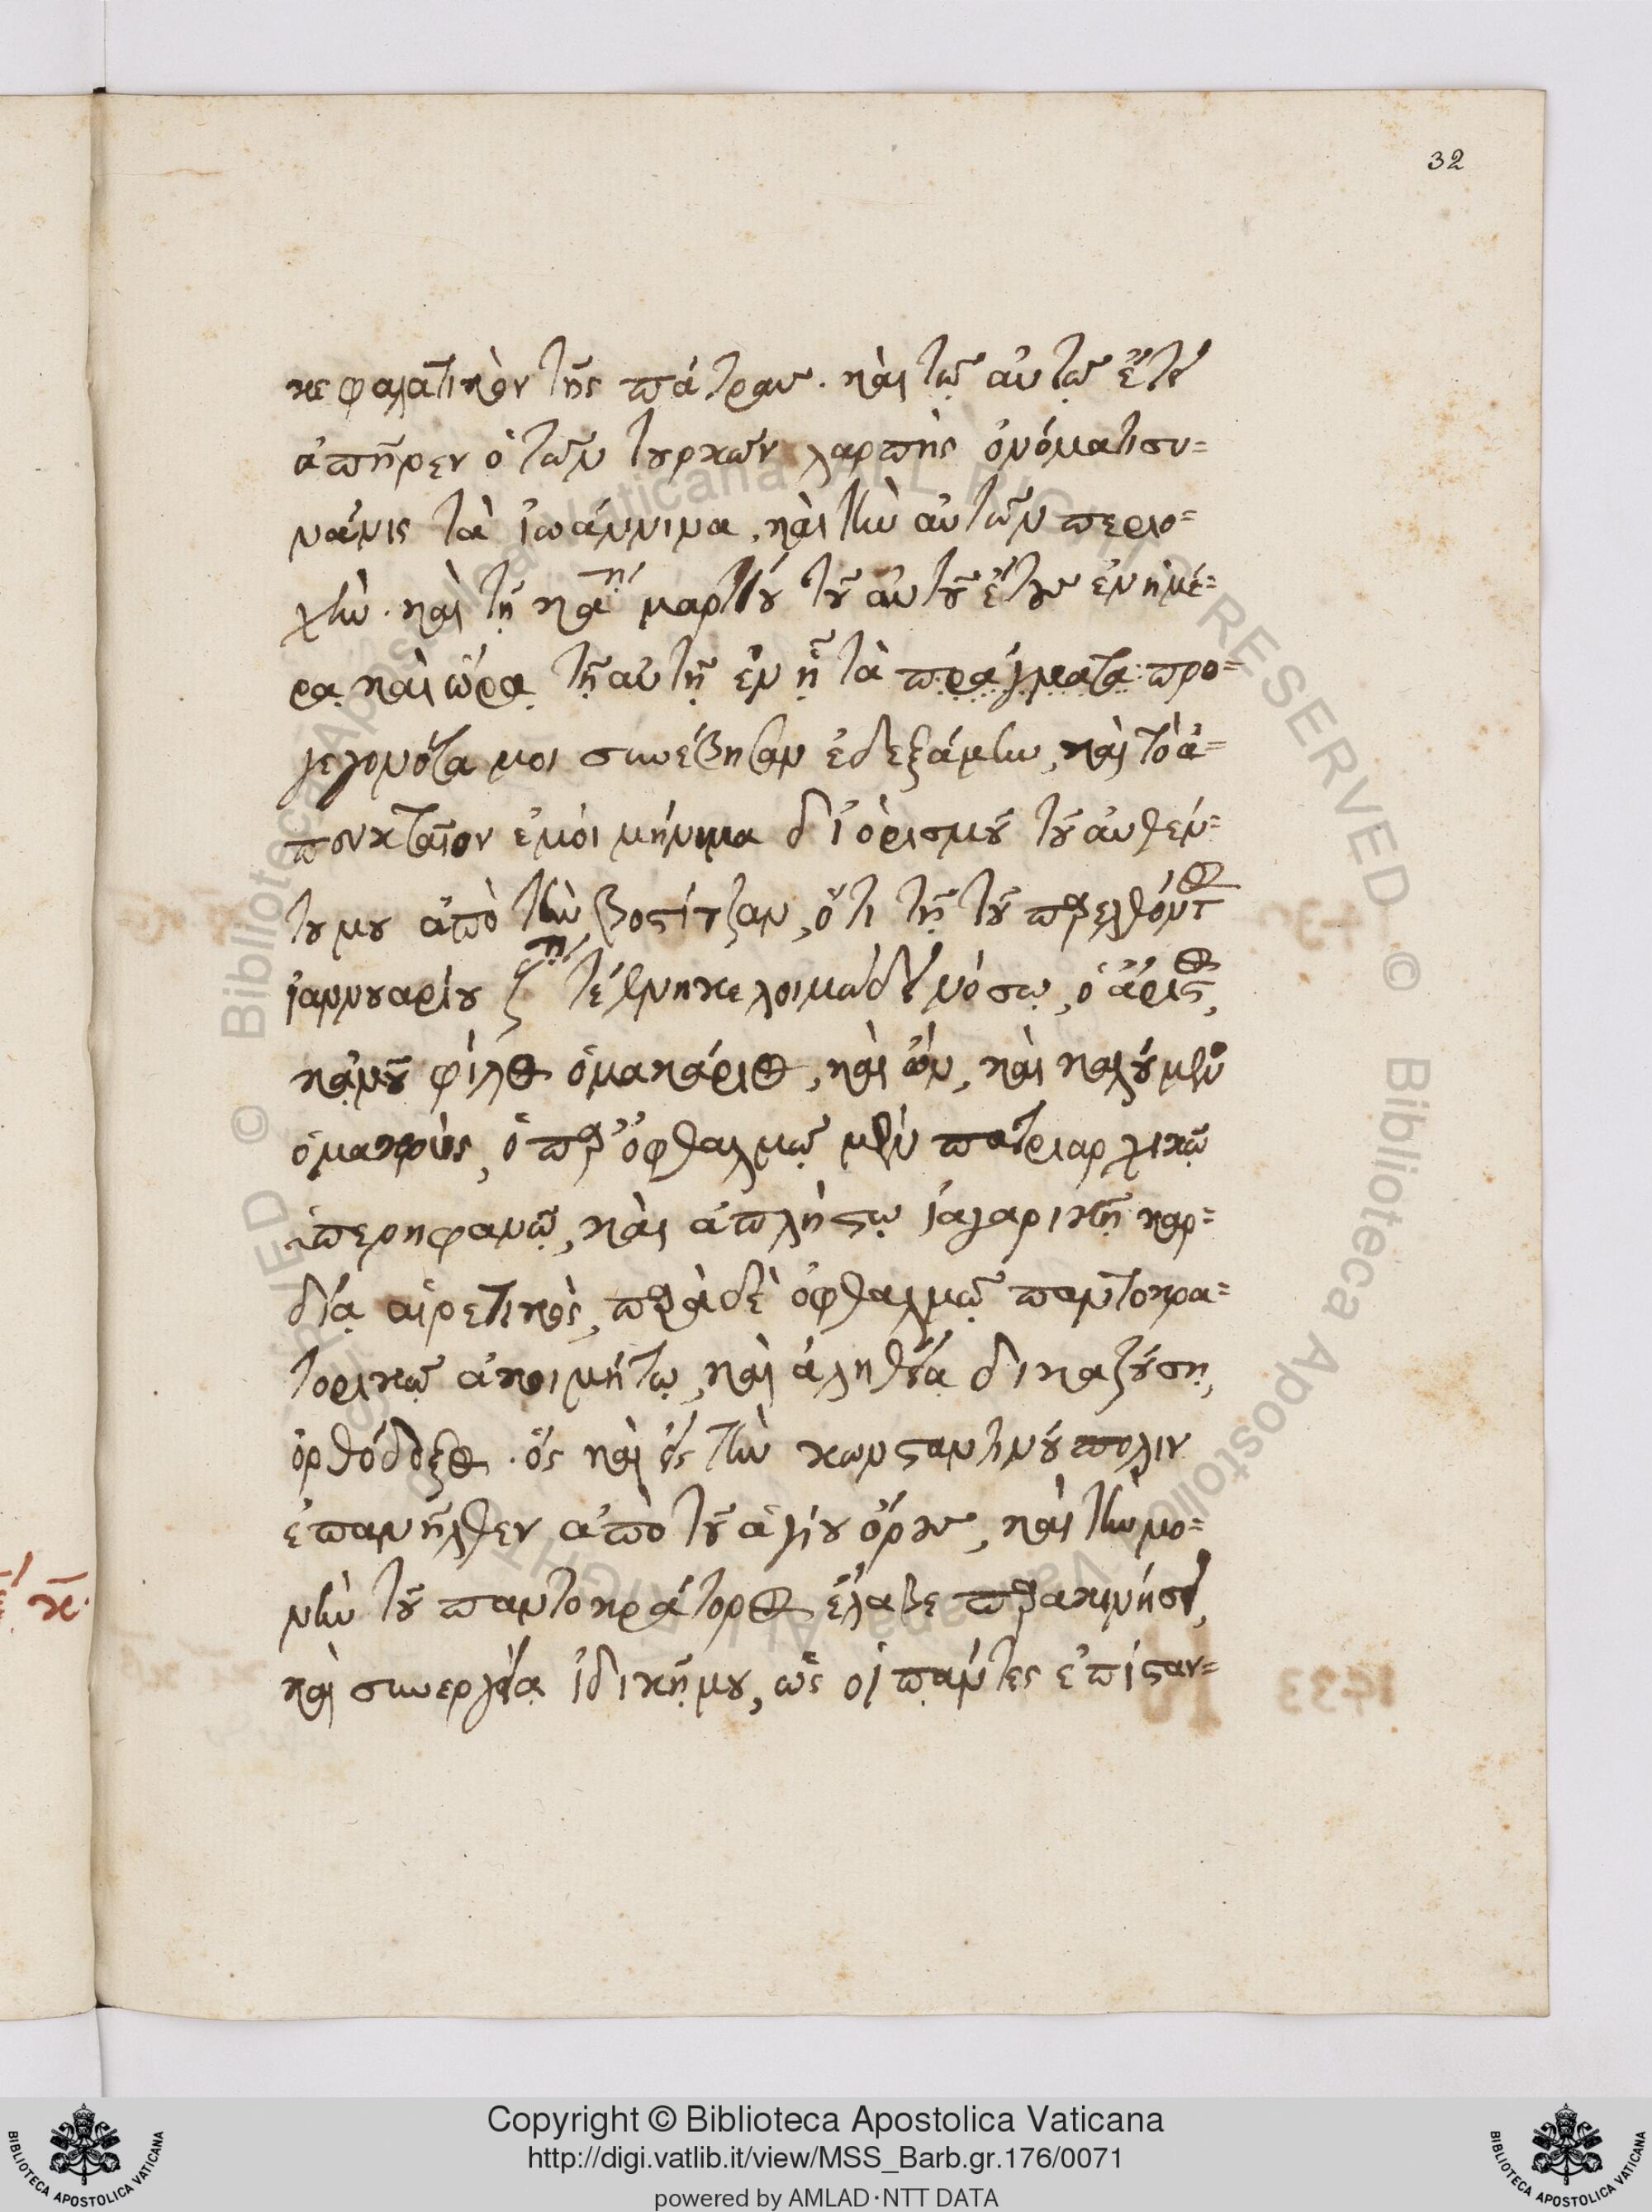 32
κεφαλατικὸν τῆς πάτρου. καὶ τῷ αὐτῷ ἔτει
ἀπῆρεν ὁ τῶν τουρκῶν λαρπῆς ὀνόματι σι=
νάνις τὰ ἰωάννινα, καὶ τὴν αὐτῶν περιο=
χὴν. καὶ τῇ κα^η μαρτίου τοῦ αὐτοῦ ἔτους ἐν ἡμέ=
ρᾳ καὶ ὥρᾳ τῇ αὐτῇ ἐν ᾗ τὰ πράγματα προ=
γεγονότα μοι συνέβησαν ἐδεξάμην, καὶ τὸ ἀ=
πουκταῖον ἐμοὶ μήνυμα δι' ὁρισμοῦ τοῦ αὐθέν=
του μου ἀπὸ τὴν βοστίτζαν, ὅτι τῇ τοῦ παρελθόντος
ἰαννουαρίου ζ^η τέθνηκε λοιμώδει νόσῳ, ὁ ἄριστος,
κἀμοῦ φίλος ὁ μακάριος, καὶ ὢν, καὶ καλούμενος
ὁ μακρὺς, ὁ παρ' ὀφθαλμῷ μὲν πατριαρχικῷ
ὑπερηφανῷ, καὶ ἀπλήστῳ ἰαγαρικῇ καρ=
δίᾳ αἱρετικὸς, παρὰ δὲ ὀφθαλμῷ παντοκρα=
τορικῷ ἀκοιμήτῳ, καὶ ἀληθείᾳ δικαζούσῃ,
ὀρθόδοξος. ὃς καὶ εἰς τὴν κωνσταντινούπολιν
ἐπανῆλθεν ἀπὸ τοῦ ἁγίου ὄρους, καὶ τὴν μο=
νὴν τοῦ παντοκράτορος ἔλαβε παρακινήσει,
καὶ συνεργείᾳ ἰδικῇ μου, ὡς οἱ πάντες ἐπίσταν=
Copyright © Biblioteca Apostolica Vaticana
http://digi.vatlib.it/view/MSS_Barb.gr.176/0071
powered by AMLAD·NTT DATA
BIBLIOTECA APOSTOLICA VATICANA
BIBLIOTECA APOSTOLICA VATICANA